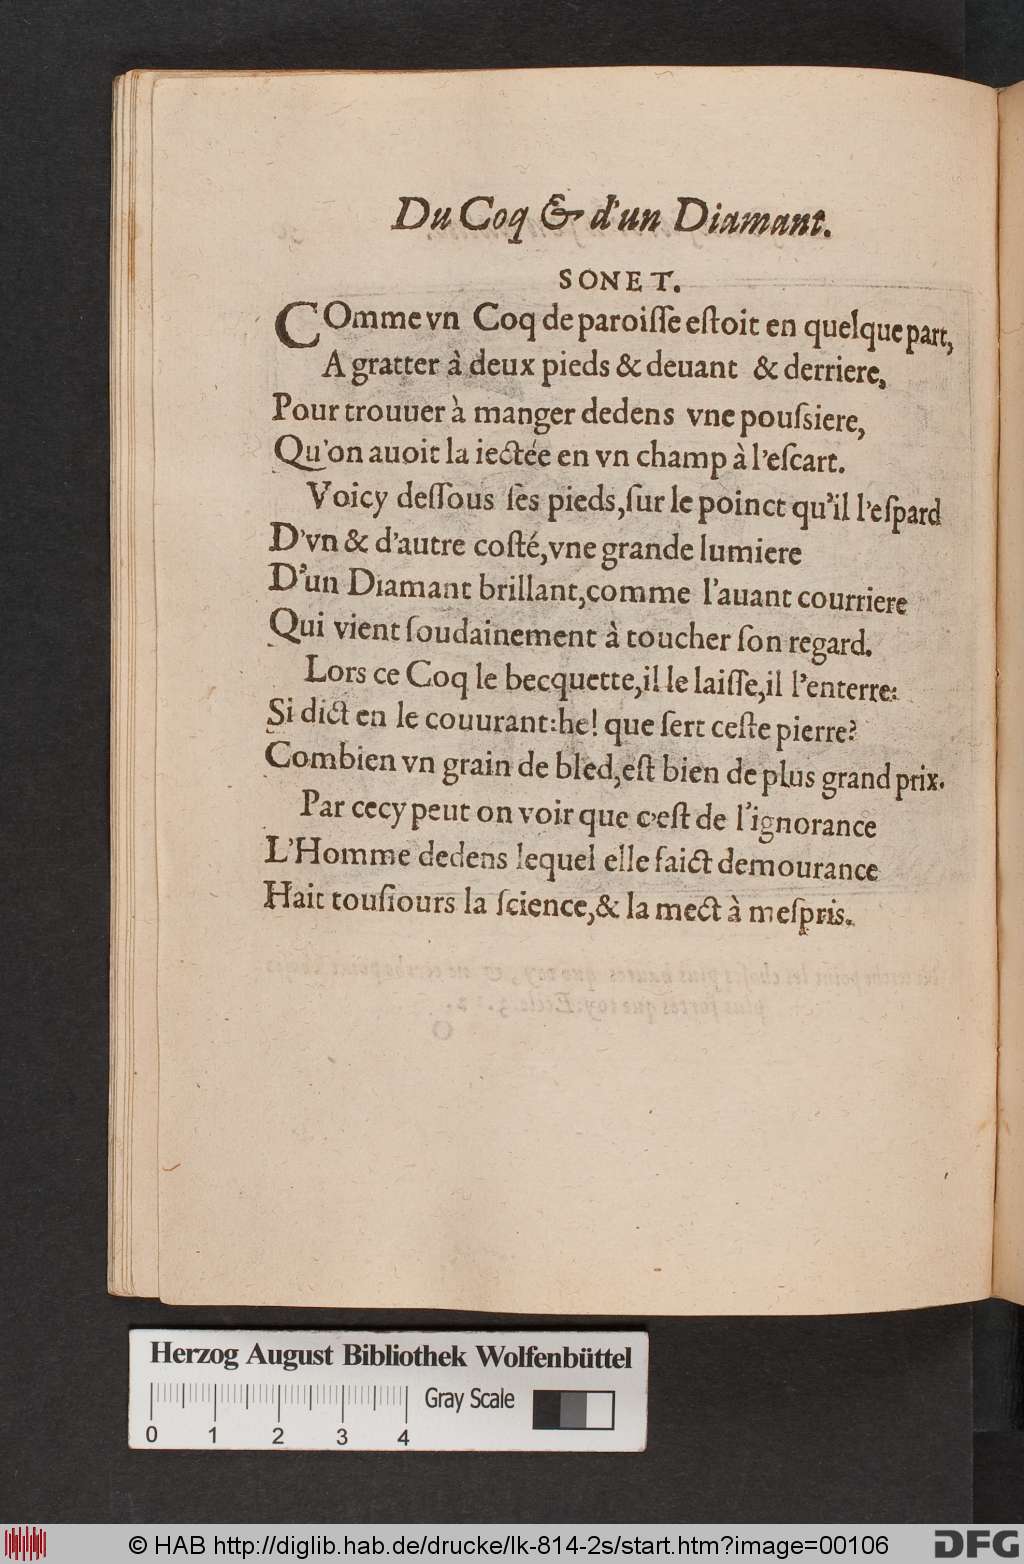 Du Coq & d'un Diamant.
SONET.
COmme vn Coq de paroiſſe eſtoit en quelque part,
A gratter à deux pieds & deuant & derriere,
Pour trouuer à manger dedens vne pouſsiere,
Qu'on auoit la iectée en vn champ à l'eſcart.
Voicy deſſous ſes pieds, ſur le poinct qu'il l'eſpard
D'vn & d'autre coſté, vne grande lumiere
D'un Diamant brillant, comme l'auant courriere
Qui vient ſoudainement à toucher ſon regard.
Lors ce Coq le becquette, il le laiſſe, il l'enterre:
Si dict en le couurant: he! que ſert ceſte pierre?
Combien vn grain de bled, eſt bien de plus grand prix.
Par cecy peut on voir que c'eſt de l'ignorance
L'Homme dedens lequel elle faict demourance
Hait touſiours la ſcience, & la mect à meſpris.
Herzog August Bibliothek Wolfenbüttel
Gray Scale
0 1 2 3 4
© HAB http://diglib.hab.de/drucke/lk-814-2s/start.htm?image=00106
DFG